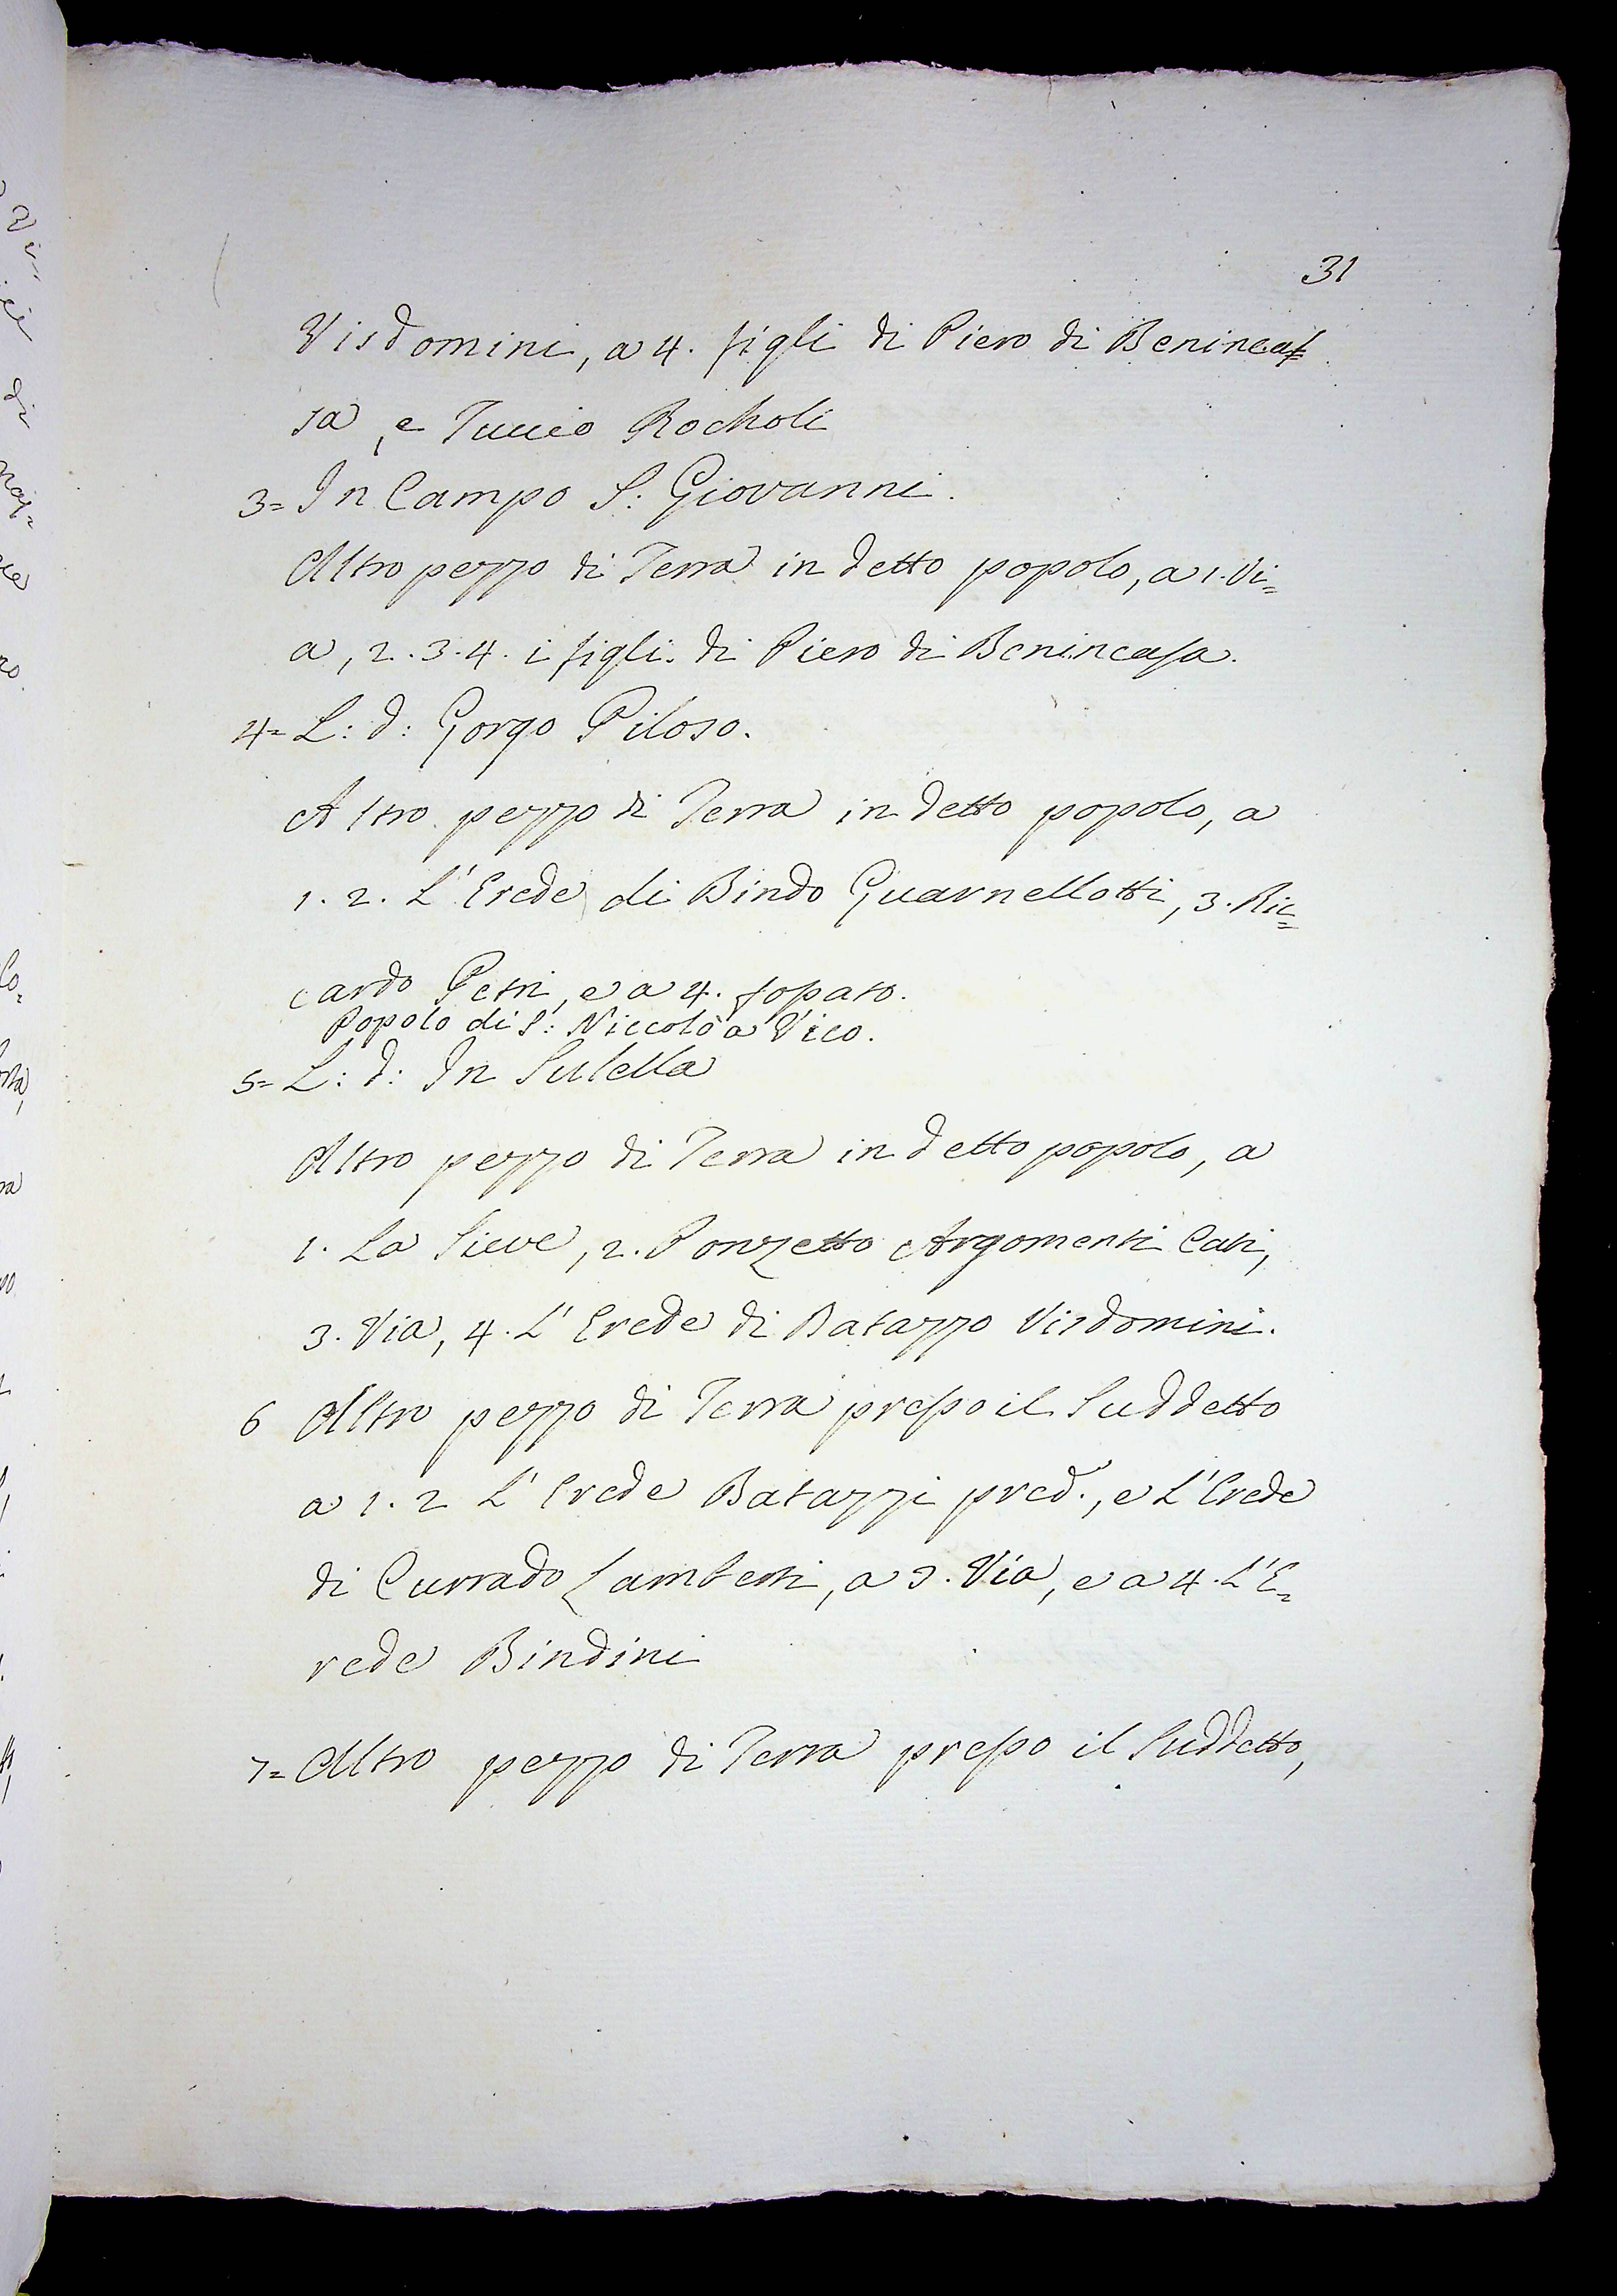 31
Visdomini, a 4. figli di Piero di Beninca=
sa, e Tuccio Rocholi
3= In Campo S: Giovanni.
Altro pezzo di Terra in detto popolo, a 1. Vi=
a, 2. 3. 4. i figli di Piero di Benincasa.
4= L: d: Gorgo Piloso.
Altro pezzo di Terra in detto popolo, a
1. 2. L'Erede di Bindo Guarnellotti, 3. Ric=
cardo Petri, e a 4. fossato.
Popolo di S: Niccolò a Vico.
5= L: d: In Sulella
Altro pezzo di Terra in detto popolo, a
1. La Sieve, 2. Ponzetto Argomenti Cati,
3. Via, 4. L'Erede di Batazzo Visdomini.
6 Altro pezzo di Terra presso il Suddetto
a 1. 2 L'Erede Batazzi pred., e L'Erede
di Currado Lamberti, a 3. Via, e a 4. L'E=
rede Bindini
7= Altro pezzo di Terra presso il Suddetto,